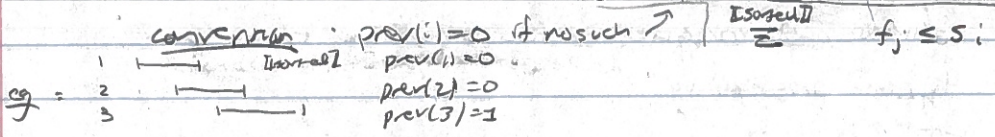 convention : prev(i)=0 if no such ↗ [Isorted] Σ fj ≤ si
1 [Isorted] prev(1)=0
eg : 2 prev(2)=0
3 prev(3)=1